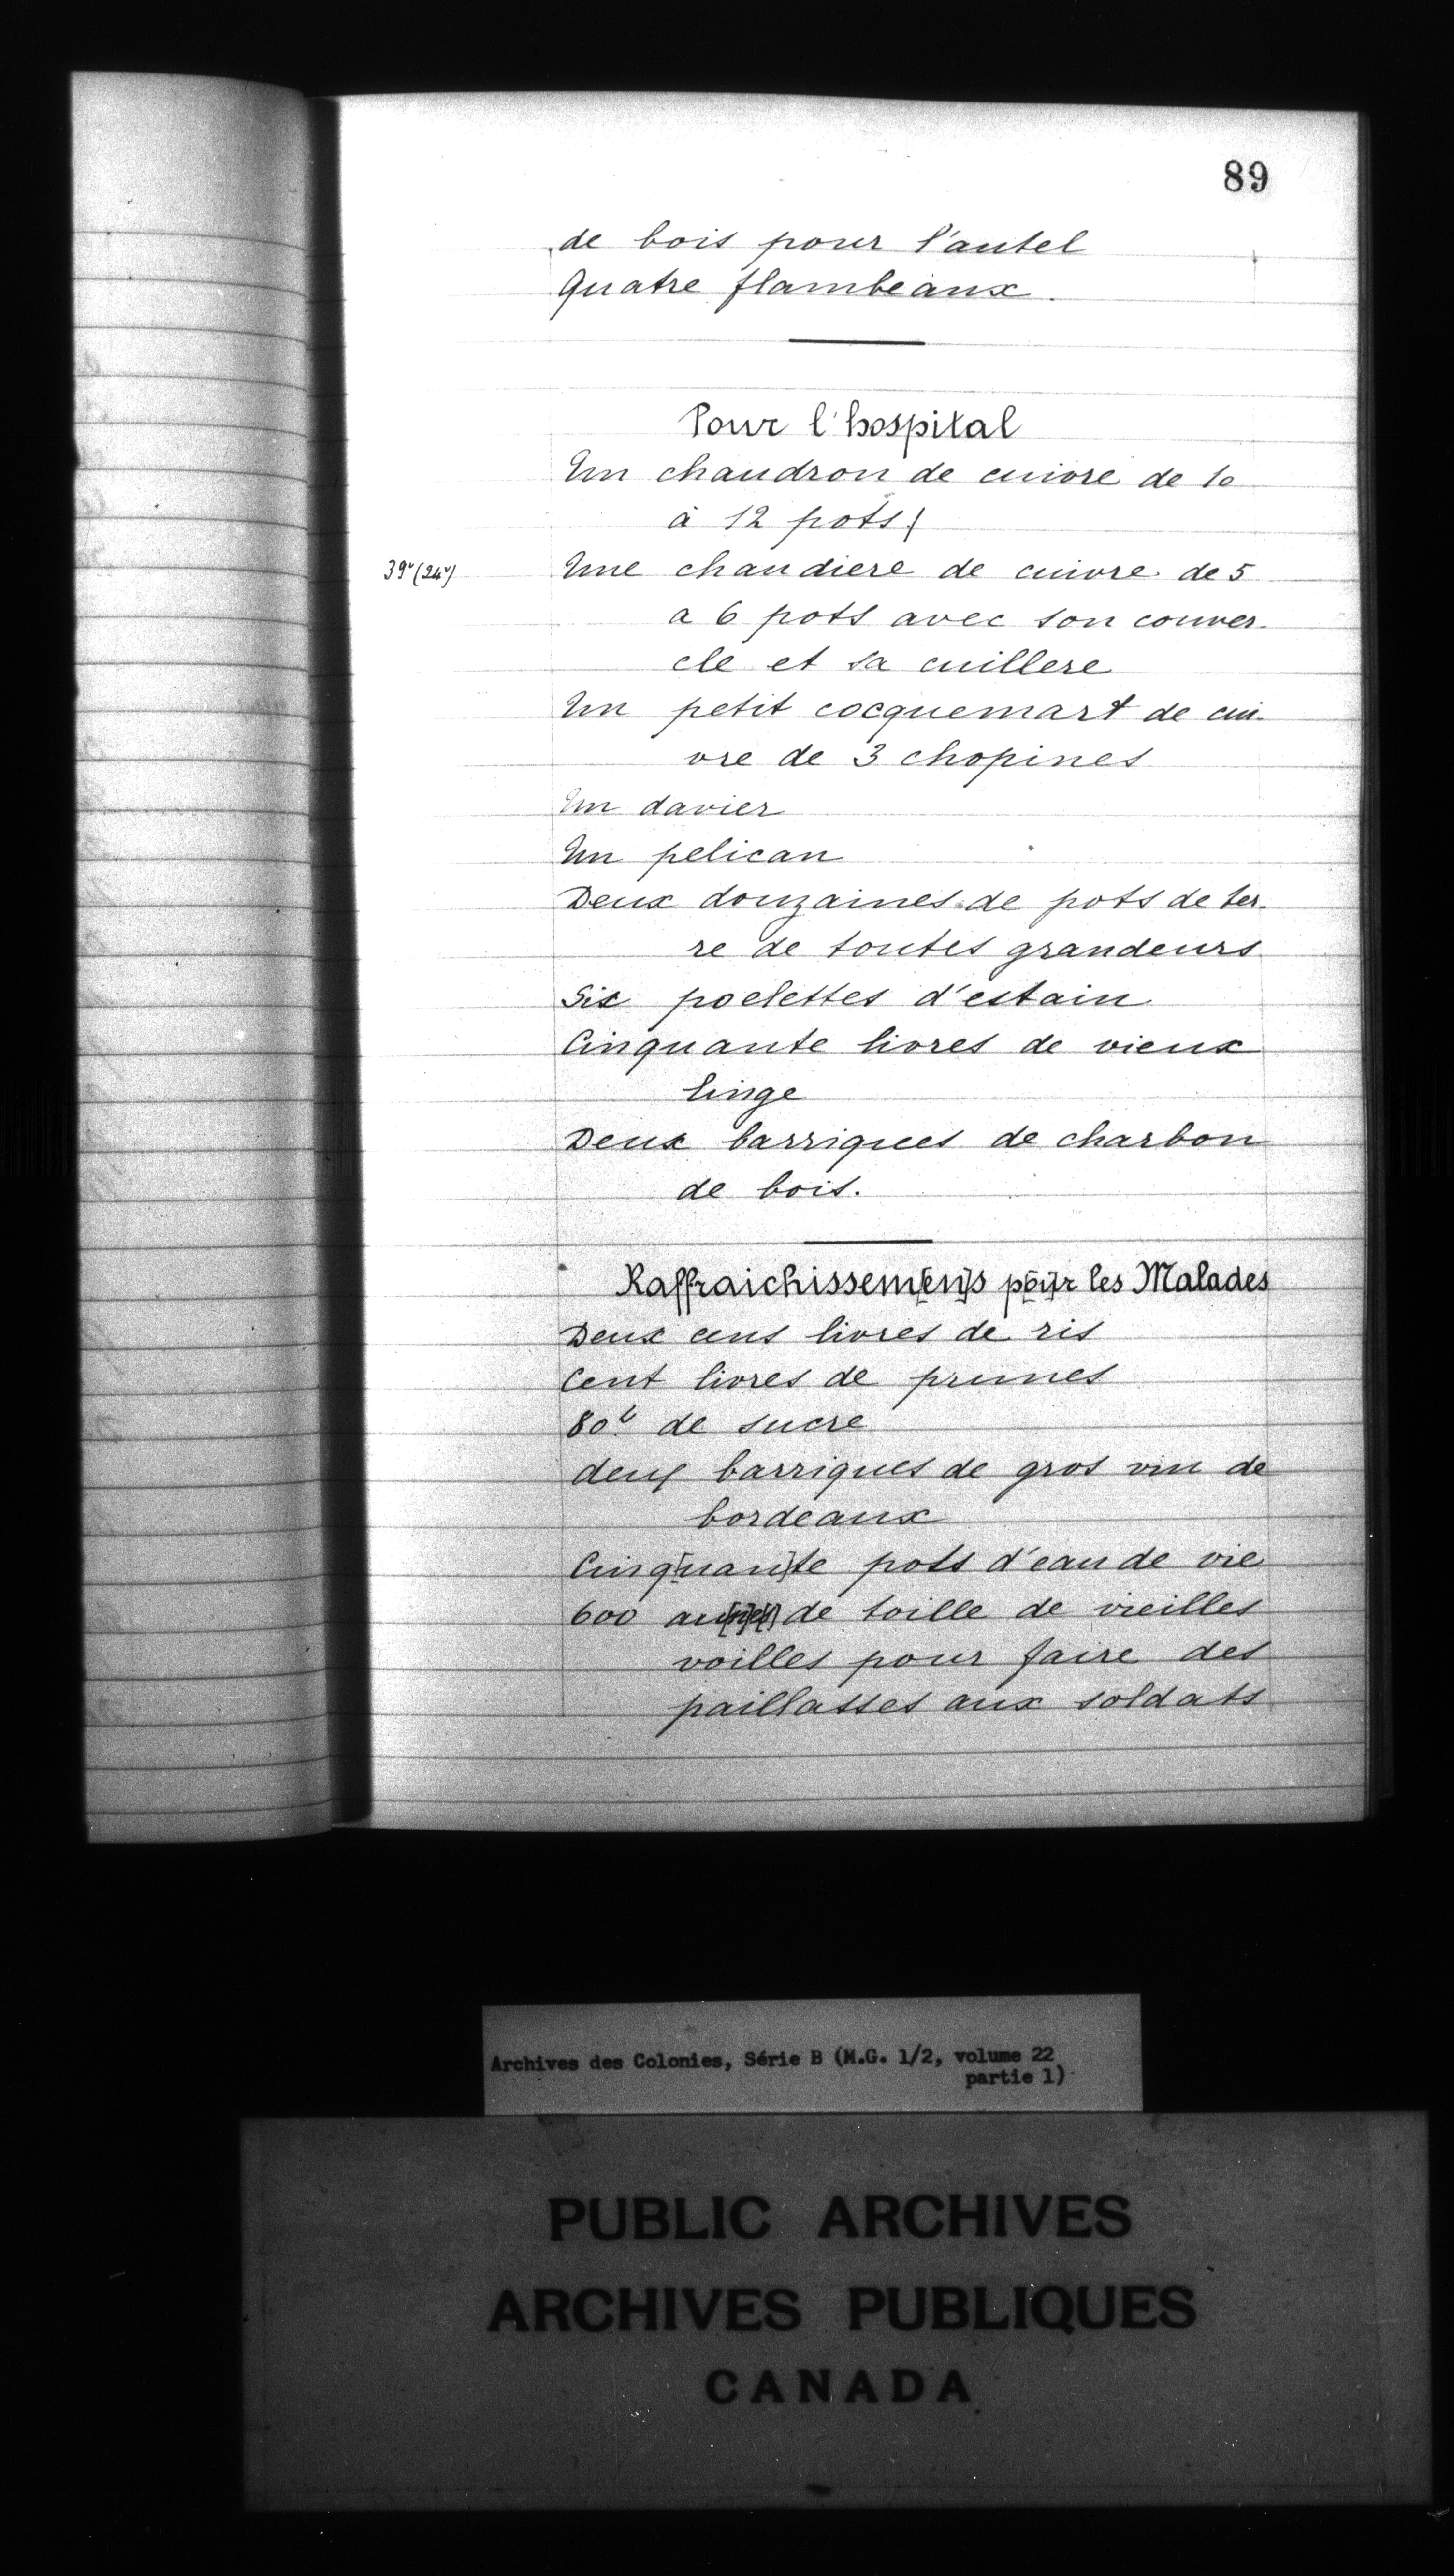 89
de bois pour l'autel
Quatre flambeaux.
Pour l'hospital
Un chaudron de cuivre de 10
à 12 pots
39v (24v)
Une chaudiere de cuivre de 5
a 6 pots avec son couver-
cle et sa cuillere
Un petit cocquemart de cui-
vre de 3 chopines
Un davier
Un pelican
Deux douzaines de pots de ter-
re de toutes grandeurs
Six poelettes d'estain
Cinquante livres de vieux
linge
Deux barriques de charbon
de bois.
Raffraichissem[en]s p[ou]r les Malades
Deux cens livres de ris
Cent livres de prunes
80l de sucre
deux barriques de gros vin de
bordeaux
Cinq[uan]te pots d'eau de vie
600 de toille de vieilles
voilles pour faire des
paillasses aux soldats
Archives des Colonies, Série B (M.G. 1/2, volume 22
partie 1)
PUBLIC ARCHIVES
ARCHIVES PUBLIQUES
CANADA